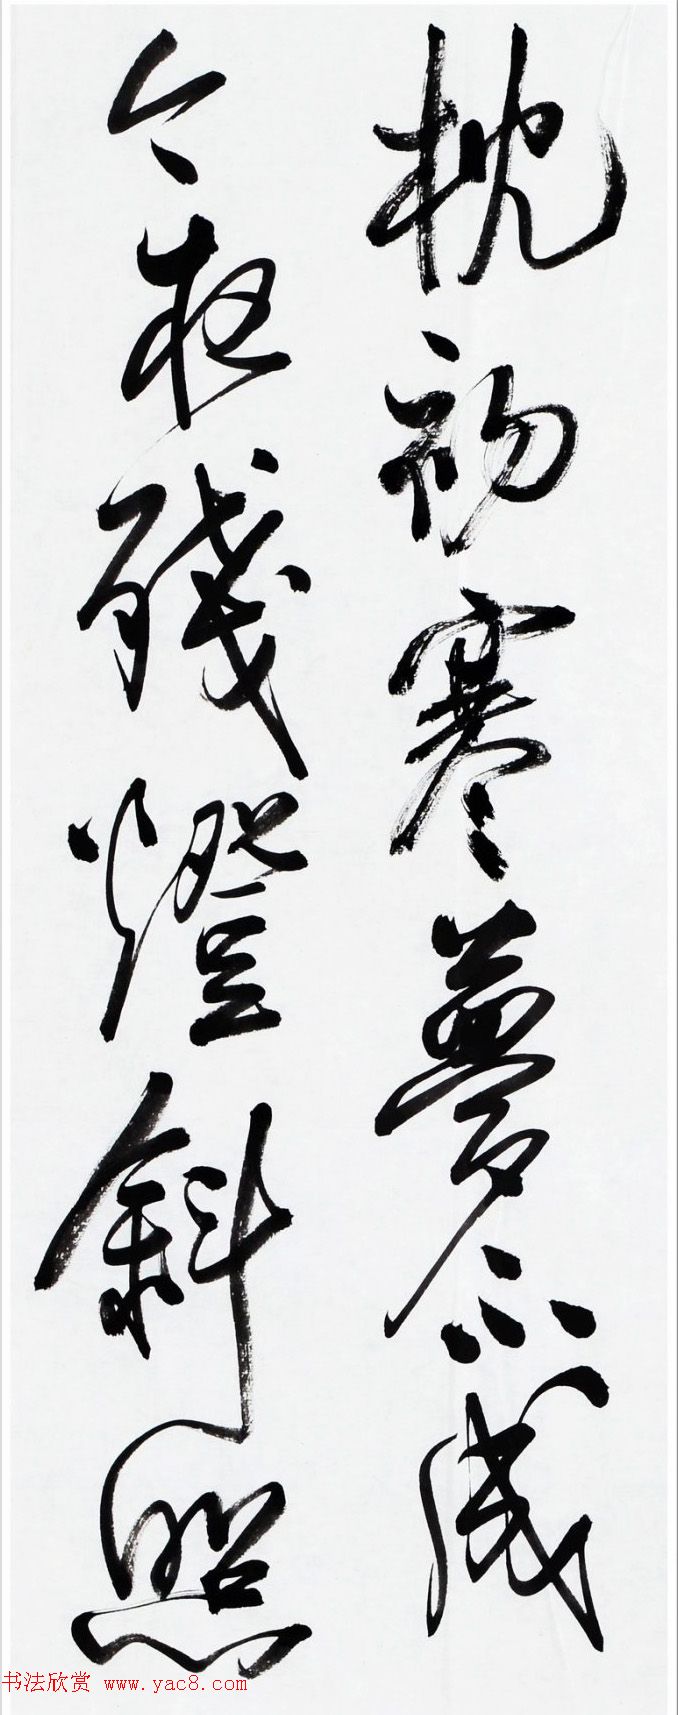 枕初寒夢不成
今夜殘燈斜照
书法欣赏 www.yac8.com